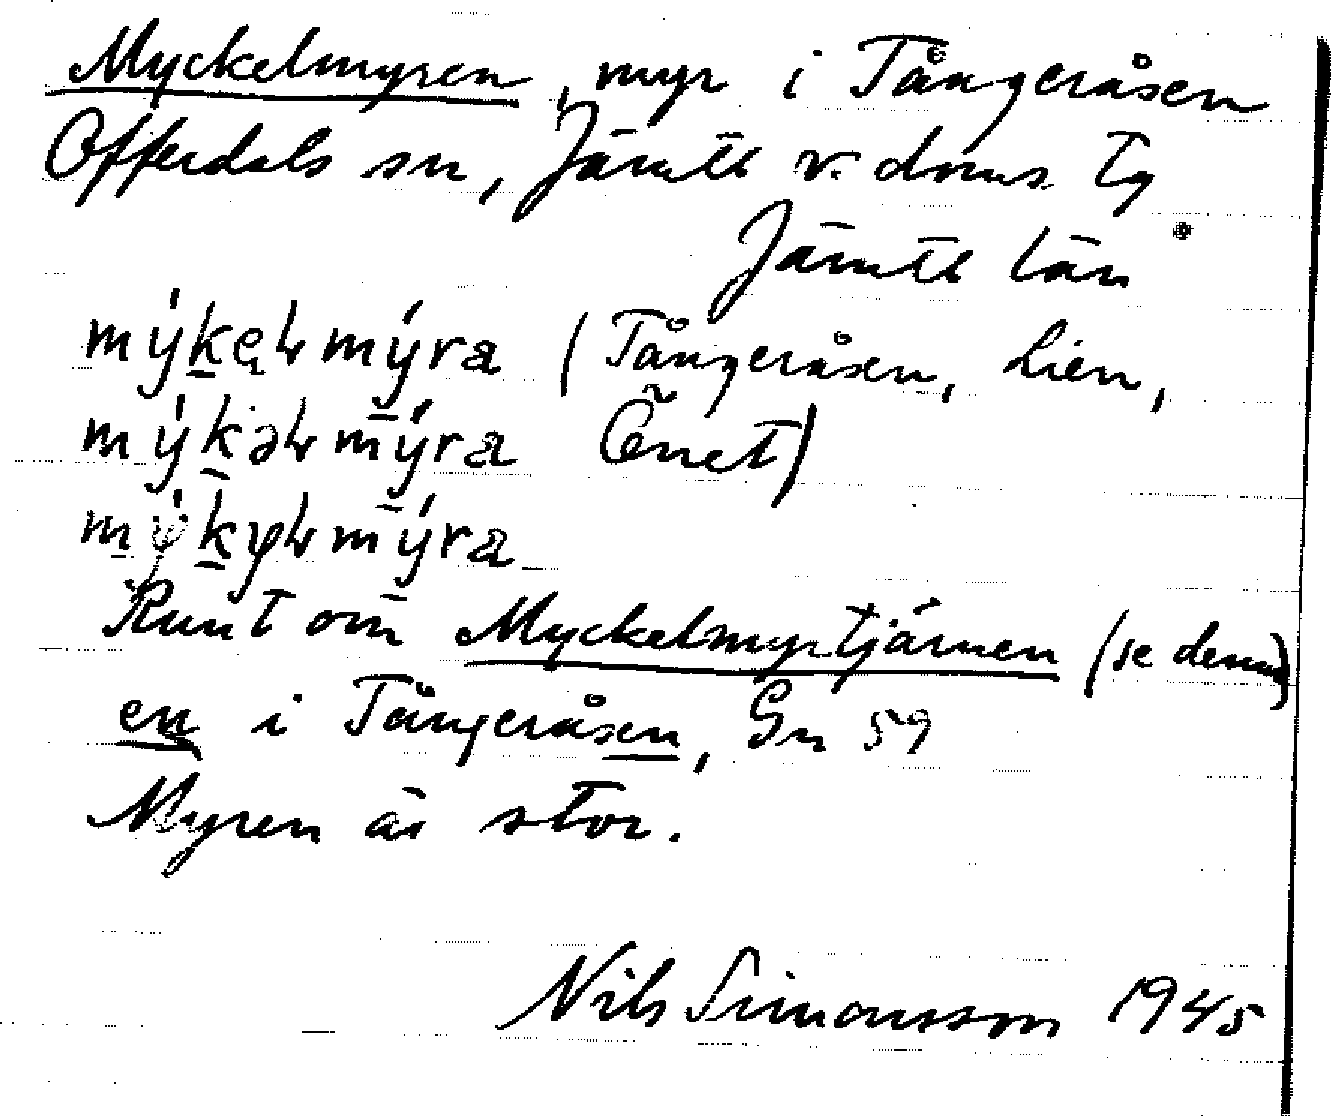 Myckelmyren, myr i Tångeråsen
Offerdals sn, Jämtl v. doms tg
Jämtl län
mýkeɫmýra (Tångeråsen, Lien,
mýkəɫmýra Önet)
mýkyɫmýra
Runt om Myckelmyrtjärnen (se denna)
en i Tångeråsen, Gn 59
Myren är stor.
Nils Simonsson 1945